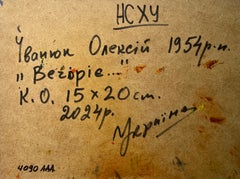 НСХУ
Іванюк Олексій 1954р.н.
"Вечоріє..."
К.О. 15х20см.
2024р.
Україна
4090 ААА.